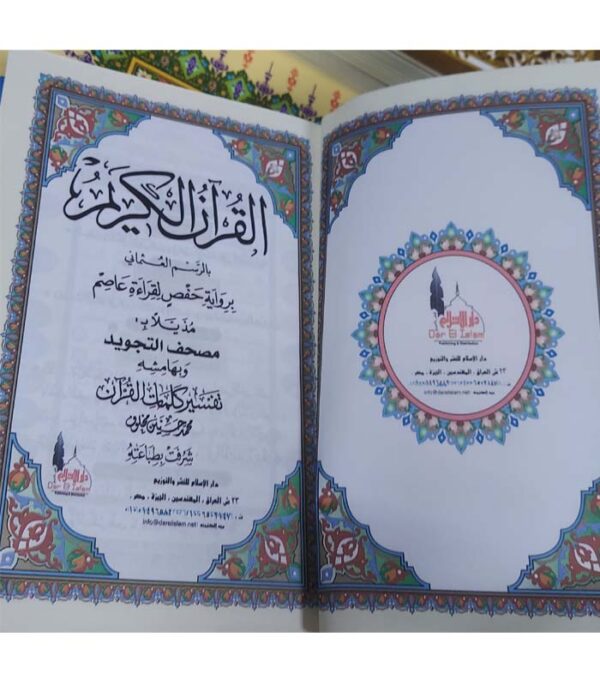 القُرآنُ الكَرِيمُ
بالرَّسم العُثماني
بِرِوَايَةِ حَفْصٍ لِقِرَاءَةِ عَاصِم
مُذَيَّلًا بـ:
مصحف التجويد
وَبِهَامِشِهِ
تفسير كلمات القُرآن
محمد حسنين مخلوف
شرفت بطباعته
دار الإسلام
Dar El Islam
Publishing & Distribution
دار الإسلام للنشر والتوزيع
٢٣ ش العراق ، المهندسين ، الجيزة ، مصر
دار الإسلام
Dar El Islam
Publishing & Distribution
دار الإسلام للنشر والتوزيع
٢٣ ش العراق ، المهندسين ، الجيزة ، مصر